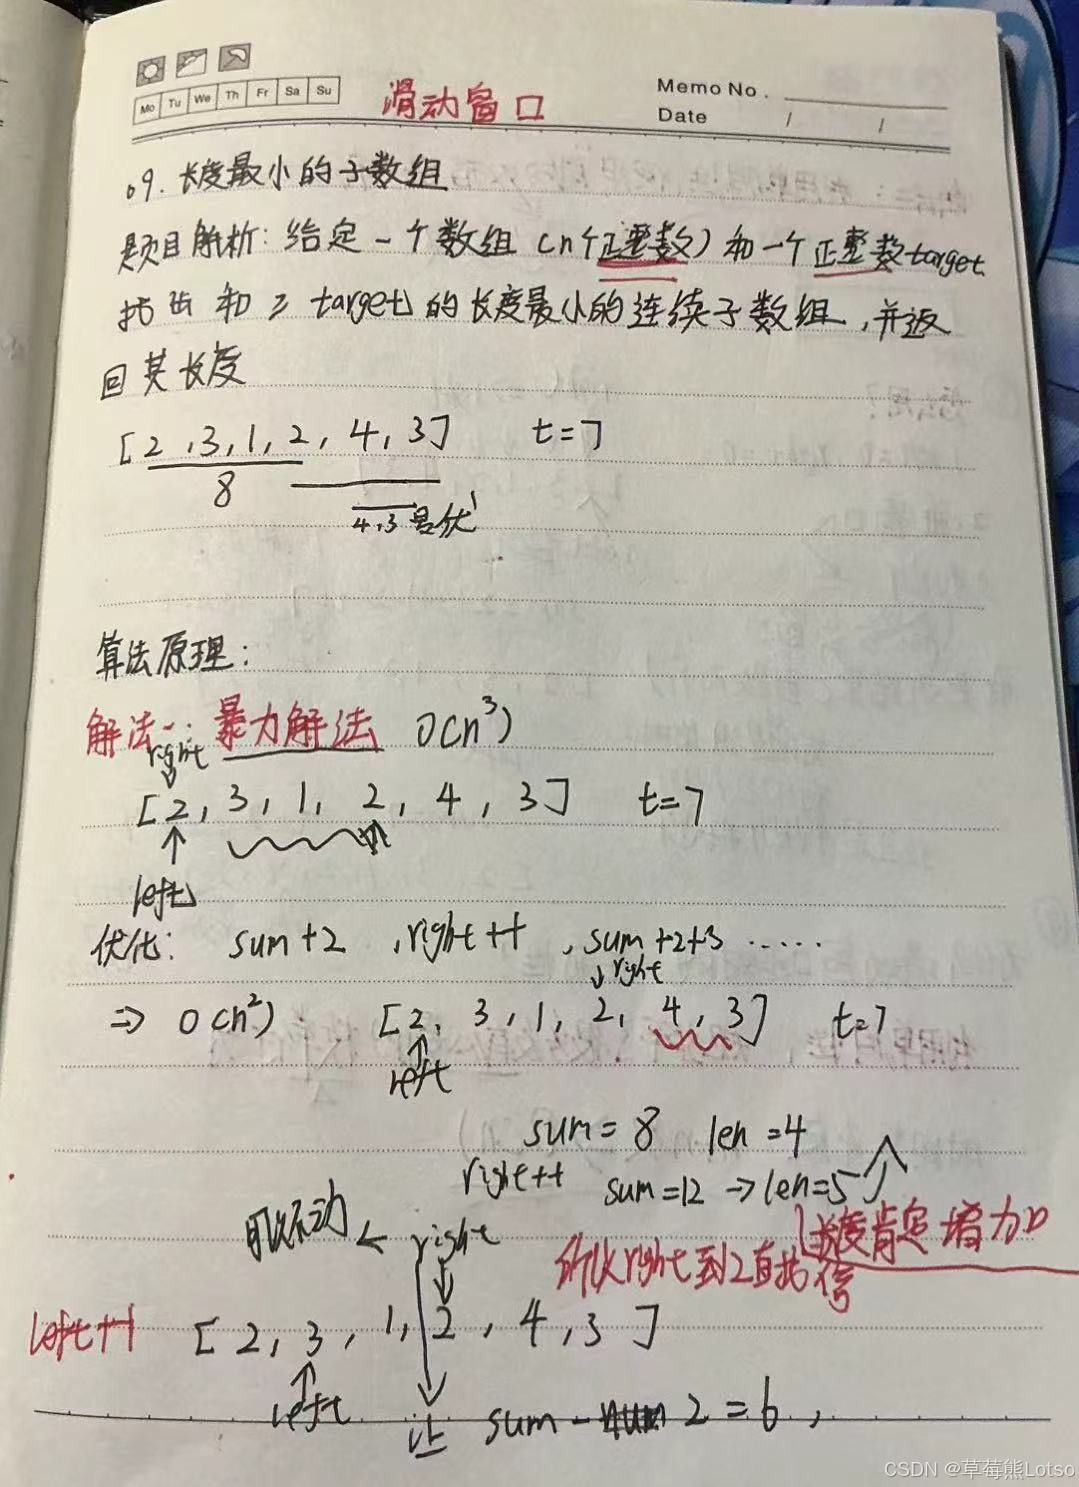 Mo Tu We Th Fr Sa Su
滑动窗口
Memo No.
Date / /
09. 长度最小的子数组
题目解析: 给定一个数组 (n个正整数) 和一个正整数target
找出 和 ≥ target 的长度最小的连续子数组,并返
回其长度
[2,3,1,2,4,3] t=7
8
4,3 最优
算法原理:
解法一: 暴力解法 O(n³)
right
[2,3,1,2,4,3] t=7
left
优化: sum+2 ,right++ ,sum+2+3 ......
right
⇒ O(n²) [2,3,1,2,4,3] t=7
left
sum=8 len=4
right++ sum=12 → len=5
长度肯定增加
可以不动 ← right
所以right到2直接
left+1 [2,3,1,2,4,3]
left
让 sum - 2 = 6 ,
CSDN @草莓熊Lotso